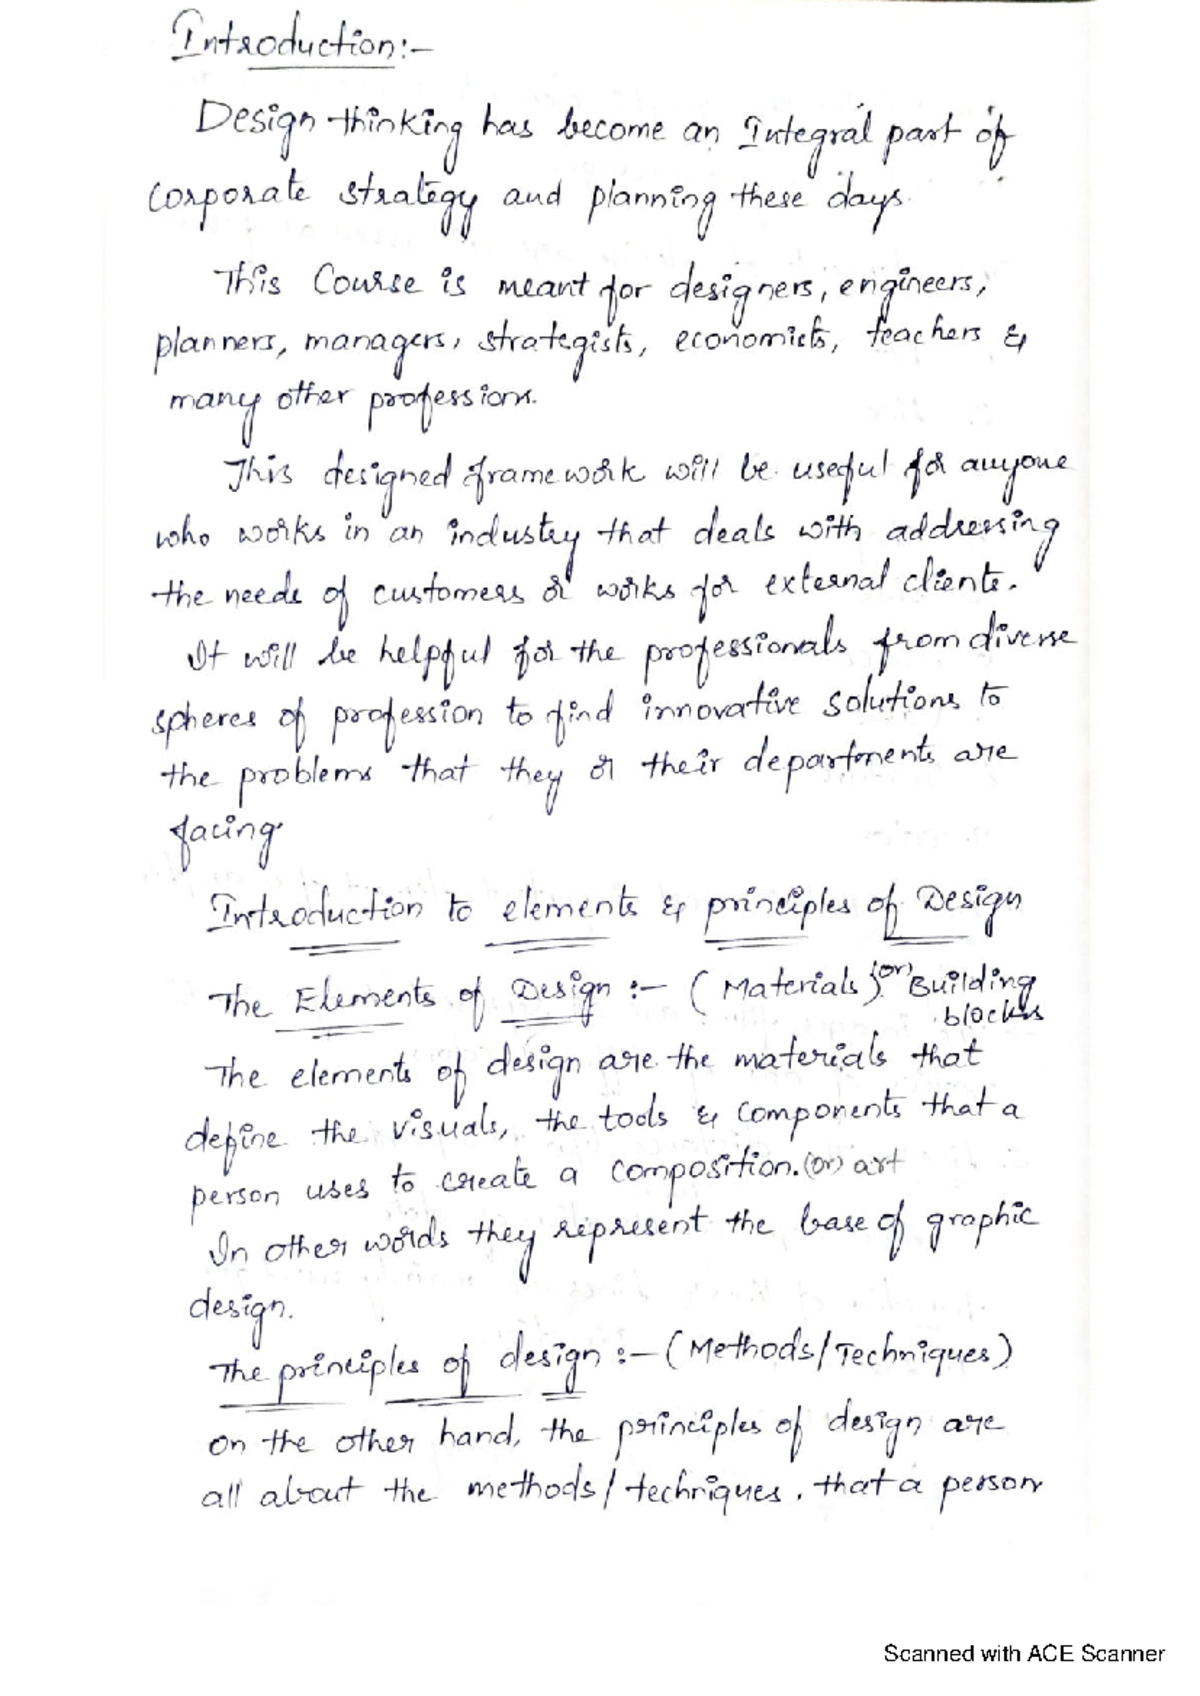 Introduction:-
Design thinking has become an Integral part of
corporate strategy and planning these days.
This Course is meant for designers, engineers,
planners, managers, strategists, economists, teachers &
many other professions.
This designed framework will be useful for anyone
who works in an industry that deals with addressing
the needs of customers or works for external clients.
It will be helpful for the professionals from diverse
spheres of profession to find innovative solutions to
the problems that they or their departments are
facing.
Introduction to elements & principles of Design
The Elements of Design :- (Materials) (or) Building
blocks
The elements of design are the materials that
define the visuals, the tools & components that a
person uses to create a composition. (or) art
In other words they represent the base of graphic
design.
The principles of design :- (Methods/Techniques)
on the other hand, the principles of design are
all about the methods/techniques, that a person
Scanned with ACE Scanner